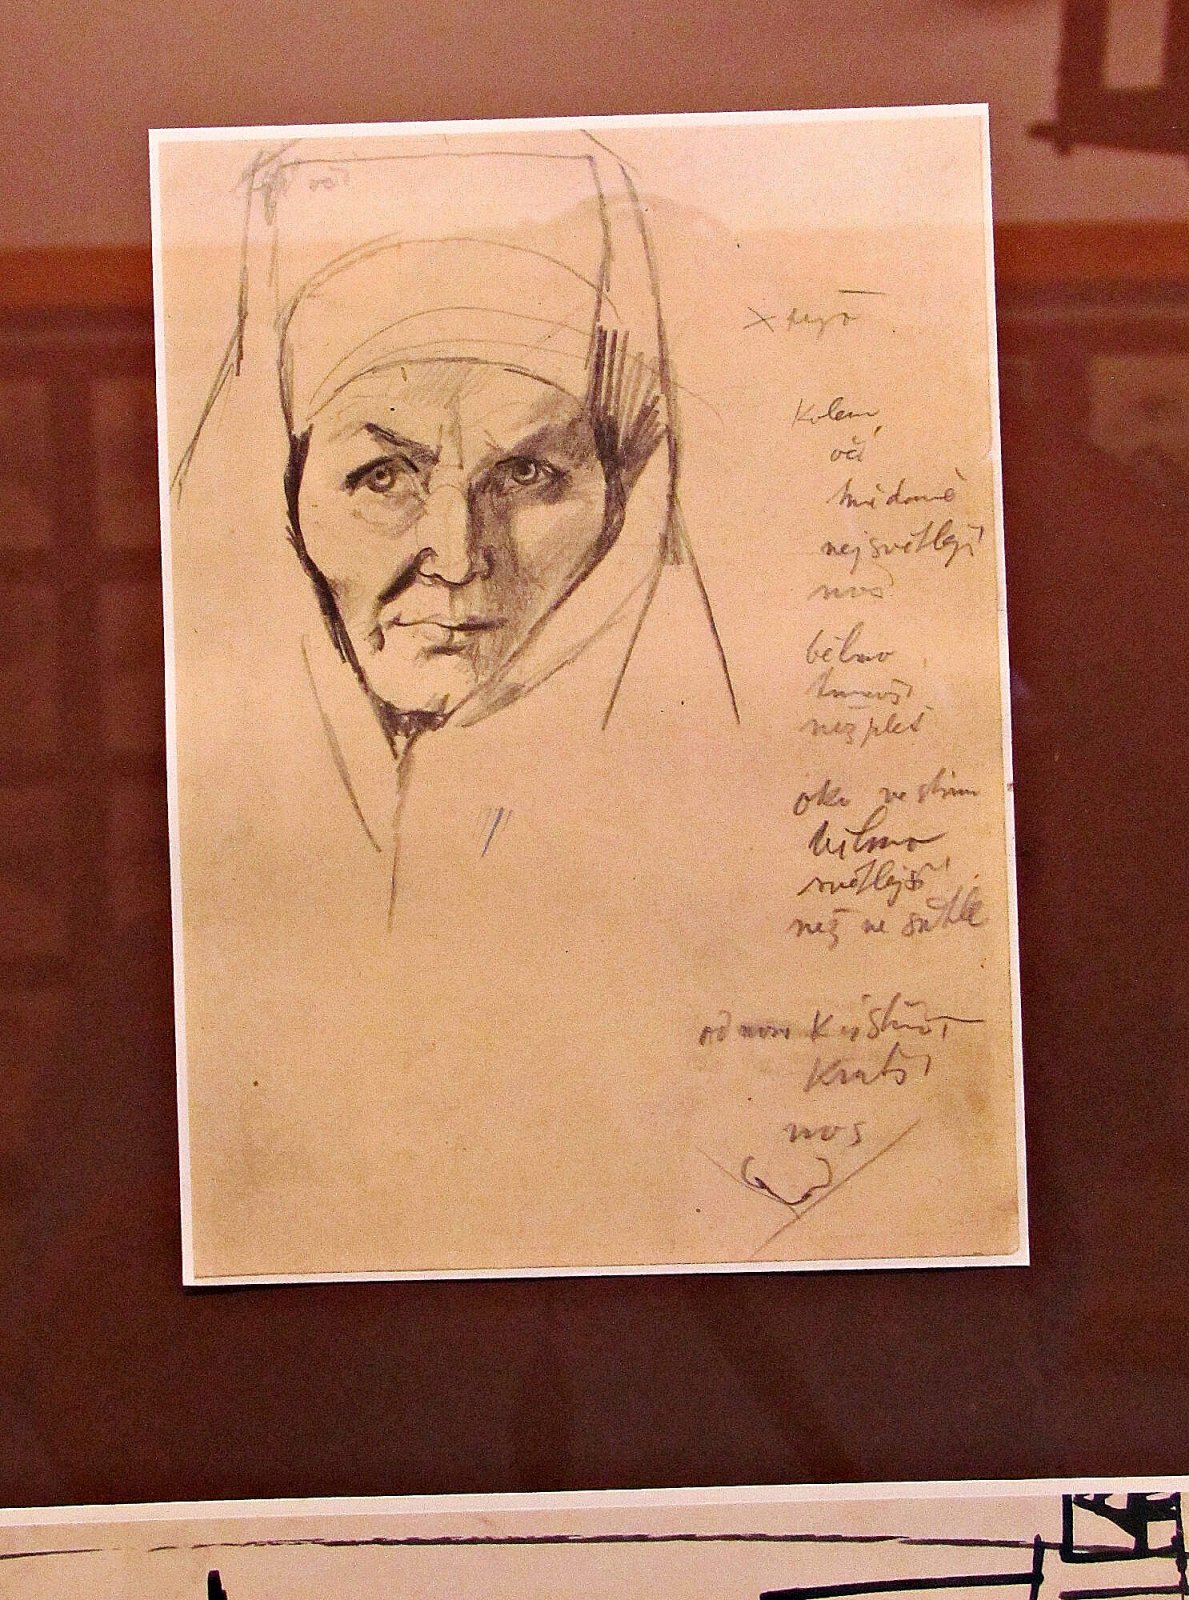 Kolem
očí
nejsvětlejší
nos
bělmo
tmavší
než pleť
oko ve stínu
bělmo
světlejší
než ve světle
od nosu
kratší
nos